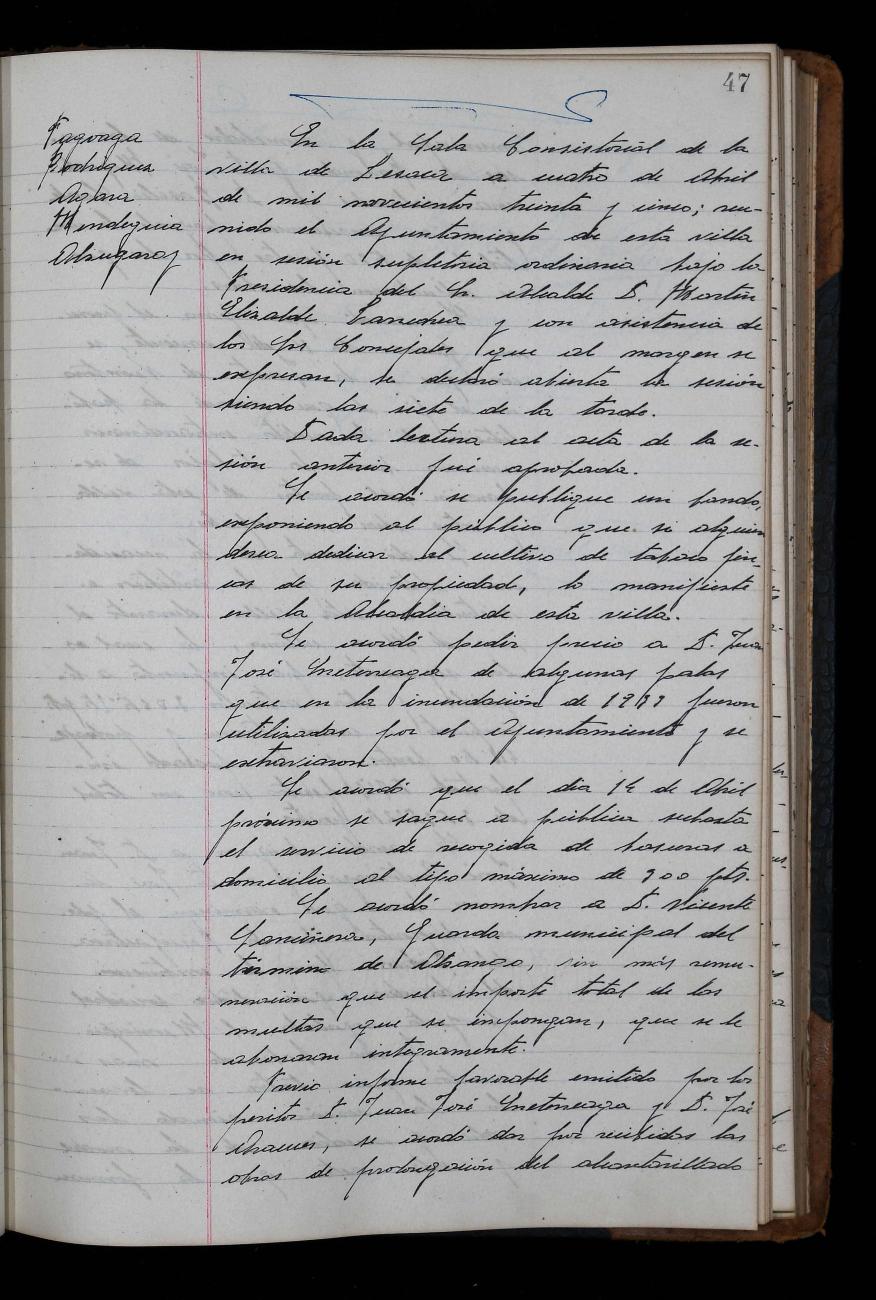 47
Taguaga
Rodriguez
Agara
Mendeguia
Alzugaray
En la Sala Consistorial de la
villa de Lesaca a cuatro de Abril
de mil novecientos treinta y cinco; reu-
nido el Ayuntamiento de esta villa
en sesión supletoria ordinaria bajo la
Presidencia del Sr. Alcalde D. Martin
Elizalde y con asistencia de
los Srs Concejales que al margen se
expresan, se declaró abierta la sesión
siendo las siete de la tarde.
Dada lectura al acta de la se-
sión anterior fué aprobada.
Se acordó se publique un bando,
exponiendo al público que si alguien
desea dedicar al cultivo de tabaco fin-
cas de su propiedad, lo manifieste
en la Alcaldia de esta villa.
Se acordó pedir precio a D. Juan
José de algunas palas
que en la inundación de 1933 fueron
utilizadas por el Ayuntamiento y se
extraviaron.
Se acordó que el dia 14 de Abril
próximo se saque a pública subasta
el servicio de recogida de basuras a
domicilio al tipo máximo de 900 pts.
Se acordó nombrar a D. Vicente
Guarda municipal del
término de Alzango, sin más remu-
neración que el importe total de las
multas que se impongan, que se le
abonaran integramente.
Previo informe favorable emitido por los
peritos D. Juan José y D. José
se acordó dar por recibidas las
obras de prolongación del alcantarillado